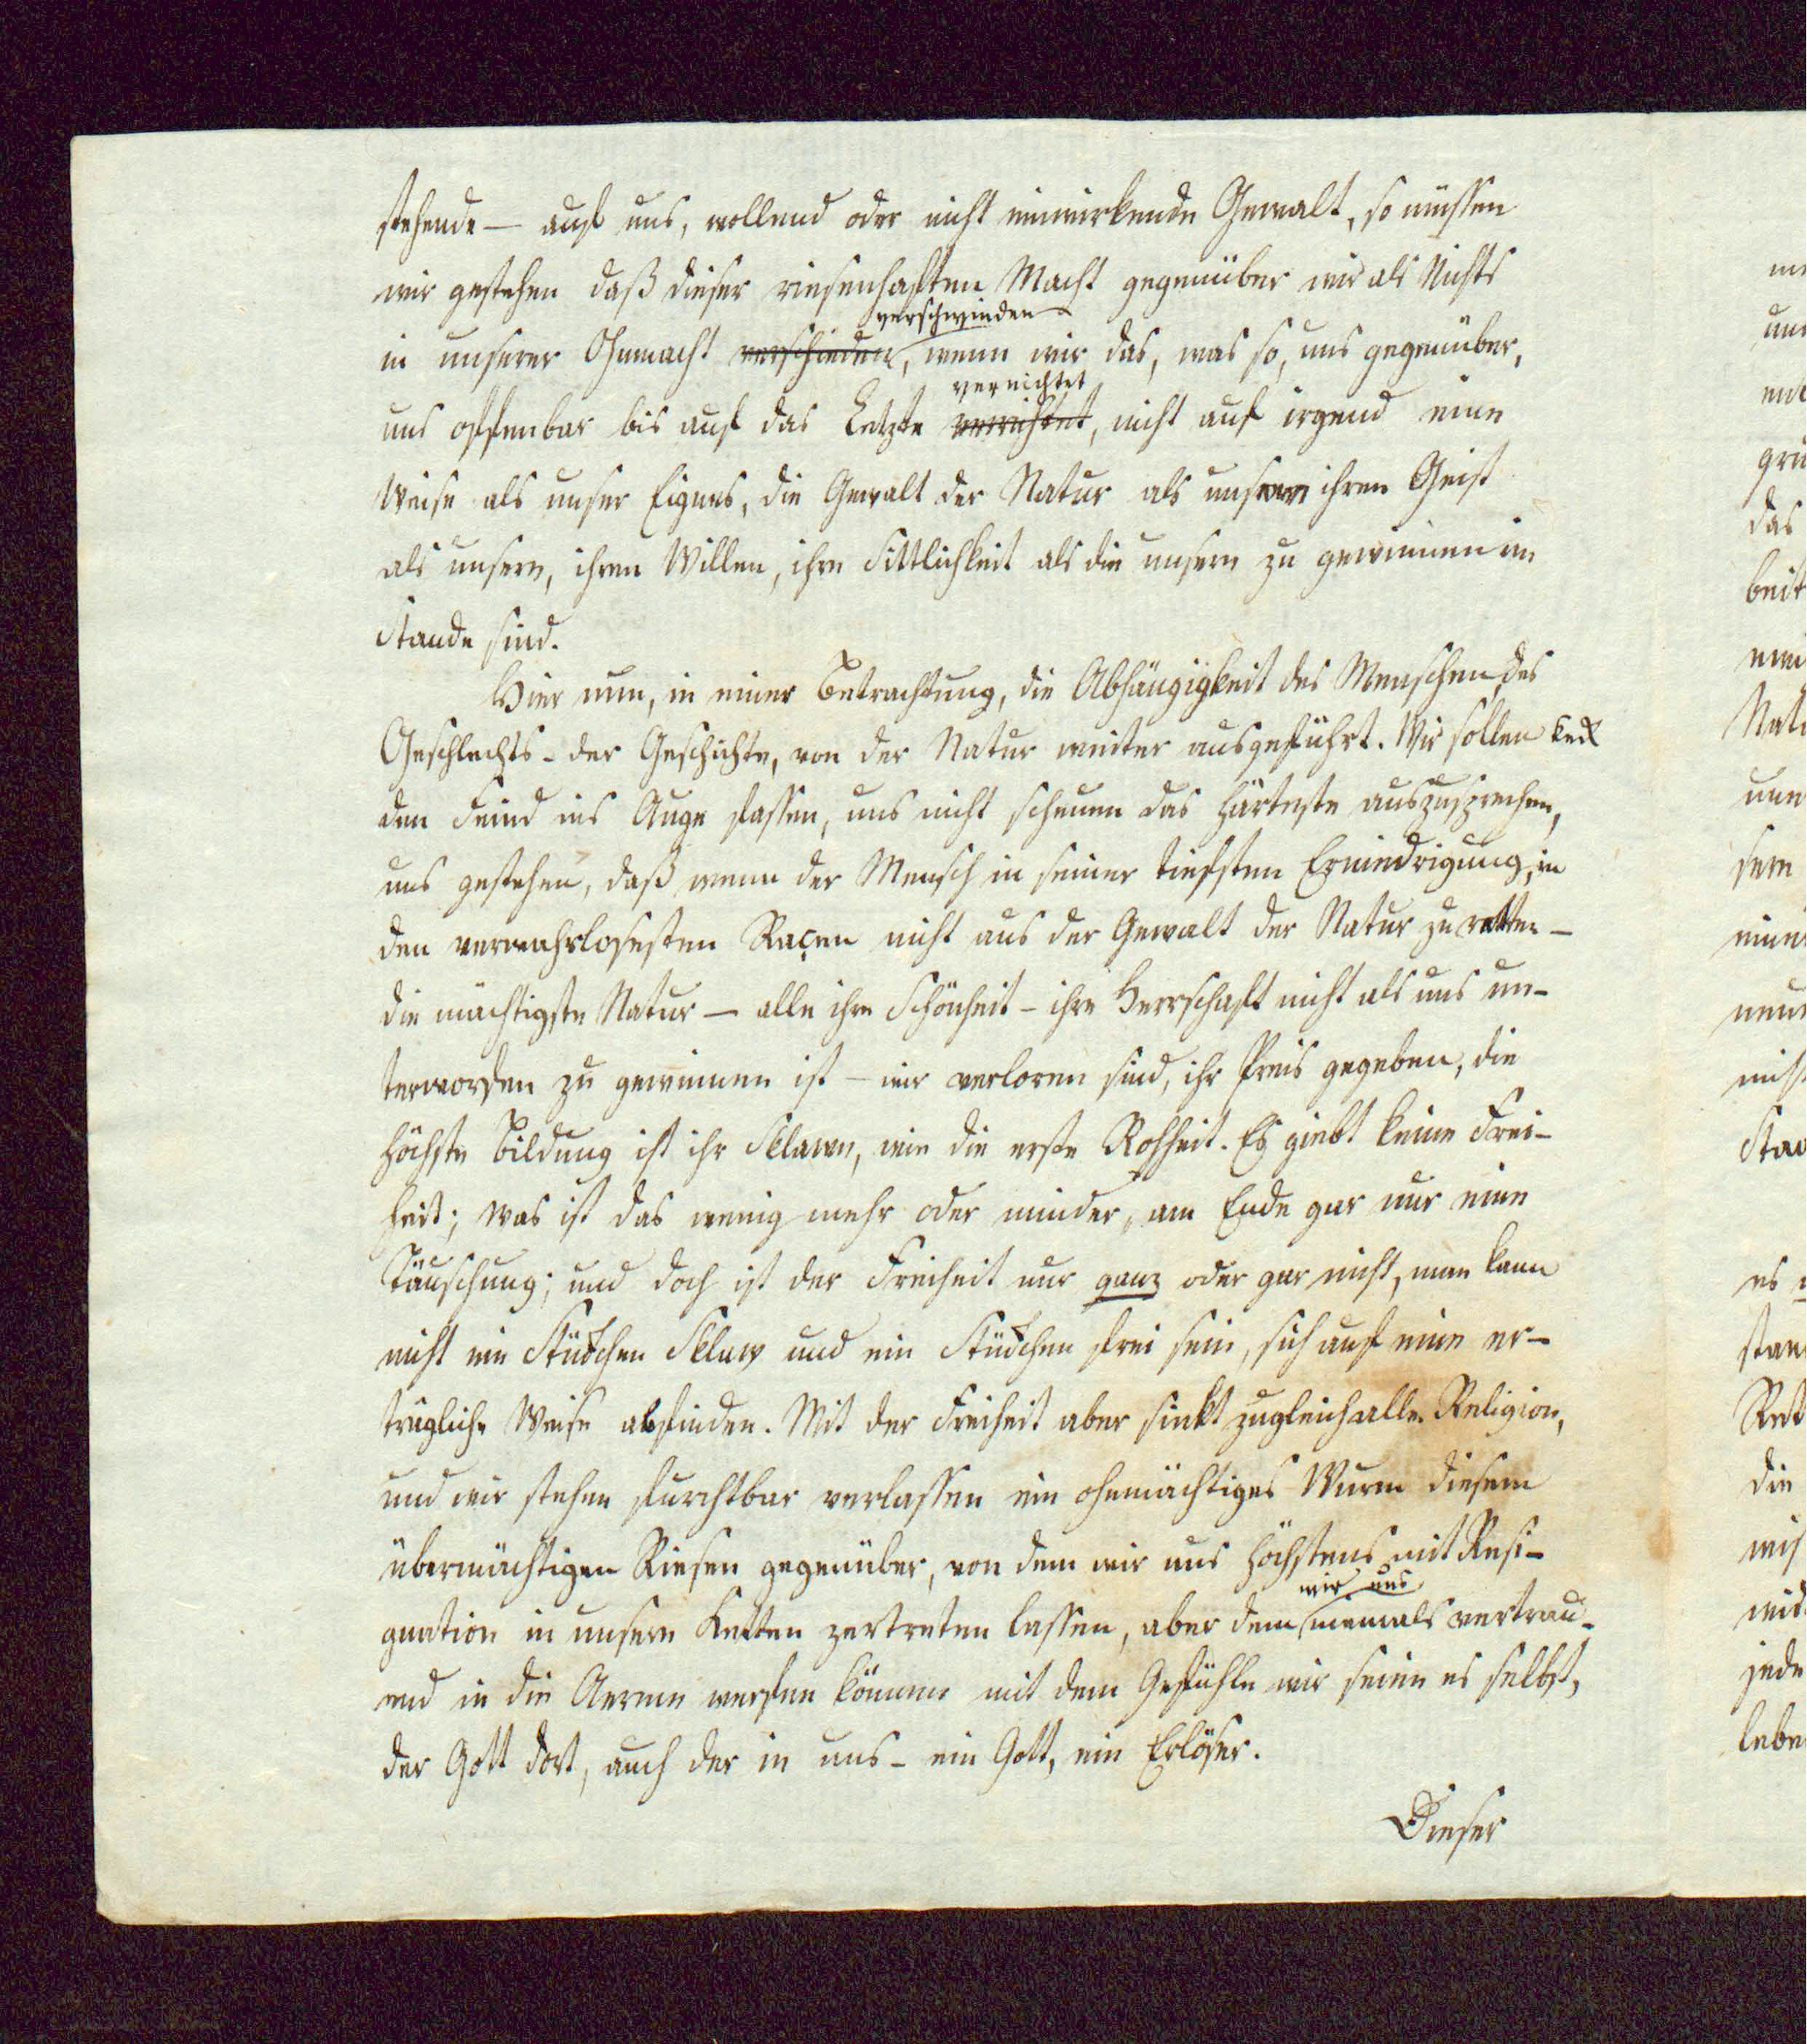 stehende — auf uns, wollend oder nicht einwirkende Gewalt, so müssen
wir gestehen daß dieser riesenhaften Macht gegenüber wir als Nichts
verschwinden
in unserer Ohnmacht verschieden, wenn wir das, was so, uns gegenüber,
vernichtet
uns offenbar bis auf das Letzte verrichtet, nicht auf irgend eine
Weise als unser Eignes, die Gewalt der Natur als unsern ihren Geist
als unsern, ihren Willen, ihre Sittlichkeit als die unsern zu gewinnen im
Stande sind.
Hier nun, in einer Betrachtung, die Abhängigkeit des Menschen, des
Geschlechts - der Geschichte, von der Natur weiter ausgeführt. Wir sollen keck
den Feind ins Auge fassen, uns nicht scheuen das Härteste auszusprechen,
uns gestehen, daß wenn der Mensch in seiner tiefsten Erniedrigung, in
den verwahrlosesten Raçen nicht aus der Gewalt der Natur zu retten —
die mächtigste Natur — alle ihre Schönheit - ihre Herrschaft nicht als uns un-
terworfen zu gewinnen ist — wir verloren sind, ihr Preis gegeben, die
höchste Bildung ist ihr Sklawe, wie die erste Rohheit. Es giebt keine Frei-
heit; was ist das wenig mehr oder minder, am Ende gar nur eine
Täuschung; und doch ist der Freiheit nur ganz oder gar nicht, man kann
nicht ein Stückchen Sklaw und ein Stückchen frei sein, sich auf eine er-
trägliche Weise abfinden. Mit der Freiheit aber sinkt zugleich alle Religion,
und wir stehen furchtbar verlassen ein ohnmächtiges Wurm diesem
übermächtigen Riesen gegenüber, von dem wir uns höchstens mit Resi-
wir uns
gnation in unsern Ketten zertreten lassen, aber dem niemals vertrau-
end in die Aerme werfen können mit dem Gefühle wir seien es selbst,
der Gott dort, auch der in uns - ein Gott, ein Erlöser.
Dieser